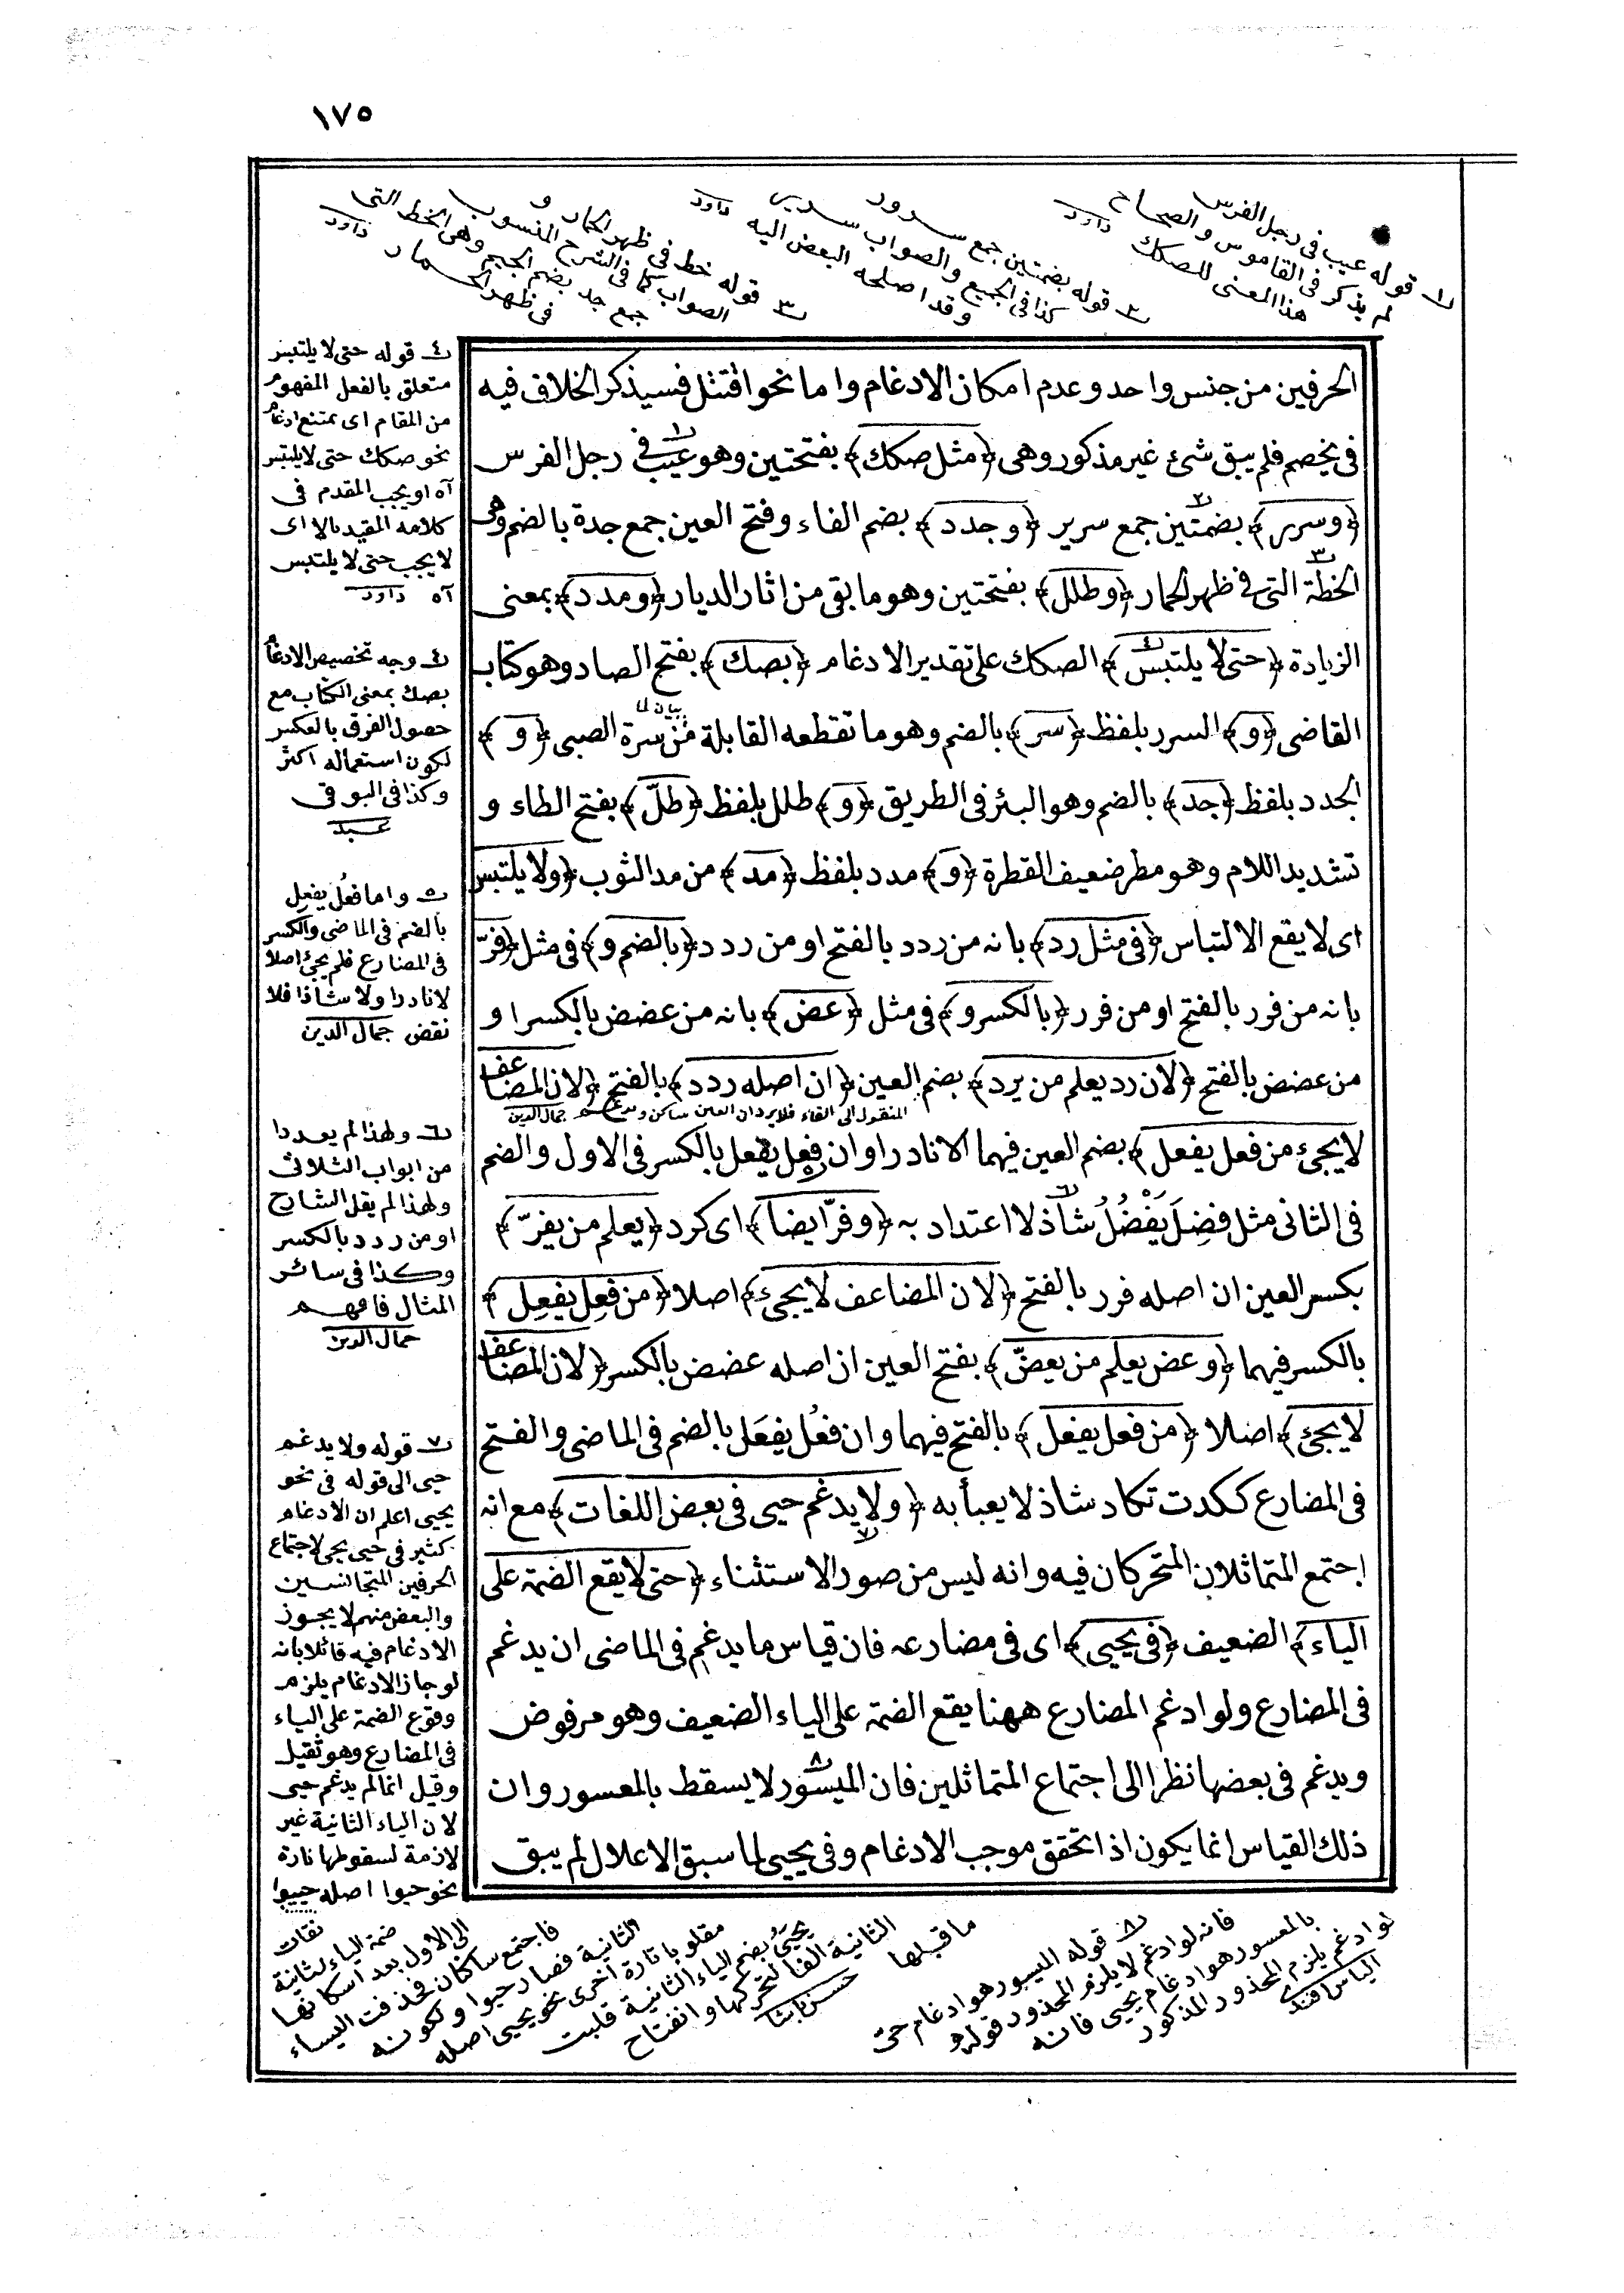 ١٧٥
١ قوله عيب فى رجل الفرس
لم يذكر فى القاموس والصحاح
هذا المعنى للصكك داود
٢ قوله بضمتين جمع سدور
كذا فى الجميع والصواب سدير
وقد اصلحه البعض اليه داود
٣ قوله خط فى ظهر الحمار و
الصواب كما فى الشرح المنسوب
جمع جد بضم الجيم وهى الخط التى
فى ظهر الحمار داود
الحرفين من جنس واحد وعدم امكان الادغام واما نحو اقتتل فسيذكر الخلاف فيه
فى يخصم فلم يبق شئ غير مذكور وهى ﴿مثل صكك﴾ بفتحتين وهو عيب فى رجل الفرس
﴿وسرر﴾ بضمتين جمع سرير ﴿وجدد﴾ بضم الفاء وفتح العين جمع جدة بالضم وهى
الخطة التى فى ظهر الحمار ﴿وطلل﴾ بفتحتين وهو ما بقى من اثار الديار ﴿ومدد﴾ بمعنى
الزيادة ﴿حتى لا يلتبس﴾ الصكك على تقدير الادغام ﴿بصك﴾ بفتح الصاد وهو كتاب
القاضى ﴿و﴾ السرر بلفظ ﴿سر﴾ بالضم وهو ما تقطعه القابلة من سرة الصبى ﴿و﴾
الجدد بلفظ ﴿جد﴾ بالضم وهو البئر فى الطريق ﴿و﴾ طلل بلفظ ﴿طلّ﴾ بفتح الطاء و
تشديد اللام وهو مطر ضعيف القطرة ﴿و﴾ مدد بلفظ ﴿مد﴾ من مد الثوب ﴿ولا يلتبس
اى لا يقع الالتباس ﴿فى مثل رد﴾ بانه من ردد بالفتح او من ردد ﴿بالضم و﴾ فى مثل ﴿فرّ
بانه من فرر بالفتح او من فرر ﴿بالكسر و﴾ فى مثل ﴿عض﴾ بانه من عضض بالكسر او
من عضض بالفتح ﴿لان رد يعلم من يرد﴾ بضم العين ﴿ان اصله ردد﴾ بالفتح ﴿لان المضاعف
المنقول الى الفاء فلا يرد ان العين ساكن ومدغم جمال الدين
لا يجئ من فعل يفعل﴾ بضم العين فيهما الا نادرا وان فعل يفعل بالكسر فى الاول والضم
فى الثانى مثل فضِلَ يَفْضُلُ شاذ لا اعتداد به ﴿وفرّ ايضا﴾ اى كرد ﴿يعلم من يفرّ﴾
بكسر العين ان اصله فرر بالفتح ﴿لان المضاعف لا يجئ﴾ اصلا ﴿من فعِل يفعِل﴾
بالكسر فيهما ﴿وعض يعلم من يعضّ﴾ بفتح العين ان اصله عضض بالكسر ﴿لان المضاعف
لا يجئ﴾ اصلا ﴿من فعل يفعل﴾ بالفتح فيهما وان فعُل يفعَل بالضم فى الماضى والفتح
فى المضارع ككدت تكاد شاذ لا يعبأ به ﴿ولا يدغم حيى فى بعض اللغات﴾ مع انه
اجتمع المتماثلان المتحركان فيه وانه ليس من صور الاستثناء ﴿حتى لا يقع الضمة على
الياء﴾ الضعيف ﴿فى يحيى﴾ اى فى مضارعه فان قياس ما يدغم فى الماضى ان يدغم
فى المضارع ولو ادغم المضارع ههنا يقع الضمة على الياء الضعيف وهو مرفوض
ويدغم فى بعضها نظرا الى اجتماع المتماثلين فان الميسور لا يسقط بالمعسور وان
ذلك القياس انما يكون اذا تحقق موجب الادغام وفى يحيى لما سبق الاعلال لم يبق
٤ قوله حتى لا يلتبس
متعلق بالفعل المفهوم
من المقام اى يمتنع ادغام
نحو صكك حتى لا يلتبس
آه او يجب المقدم فى
كلامه المقيد بالا اى
لا يجب حتى لا يلتبس
آه داود
٤ وجه تخصيص الادغام
بصك بمعنى الكتاب مع
حصول الفرق بالعكس
لكون استعماله اكثر
وكذا فى البوقى
عبد
٥ واما فعُل يفعِل
بالضم فى الماضى والكسر
فى المضارع فلم يجئ اصلا
لا نادرا ولا شاذا فلا
نقض جمال الدين
٦ ولهذا لم يعددا
من ابواب الثلاثى
ولهذا لم يقل الشارح
او من ردد بالكسر
وكذا فى سائر
المثال فافهم
جمال الدين
٧ قوله ولا يدغم
حيى الى قوله فى نحو
يحيى اعلم ان الادغام
كثير فى حيى يجئ لاجتماع
الحرفين المتجانسين
والبعض منهم لا يجوز
الادغام فيه قائلا بانه
لو جاز الادغام يلزم
وقوع الضمة على الياء
فى المضارع وهو ثقيل
وقيل انما لم يدغم حيى
لان الياء الثانية غير
لازمة لسقوطها تارة
نحو حيوا اصله حييوا
نقلت
ضمة الياء الثانية
الى الاول بعد اسكانها
فاجتمع ساكنان فحذفت الياء
الثانية فصار حيوا ولكونه
مقلوبا تارة اخرى نحو يحيى اصله
يحيى بضم الياء الثانية قلبت
الثانية الفا لتحركها وانفتاح
ما قبلها حسن پاشا
٨ قوله الميسور هو ادغام حىّ
فانه لو ادغم لا يلزم المحذور قوله
بالمعسور هو ادغام يحيى فانه
لو ادغم يلزم المحذور المذكور
الياس افندى